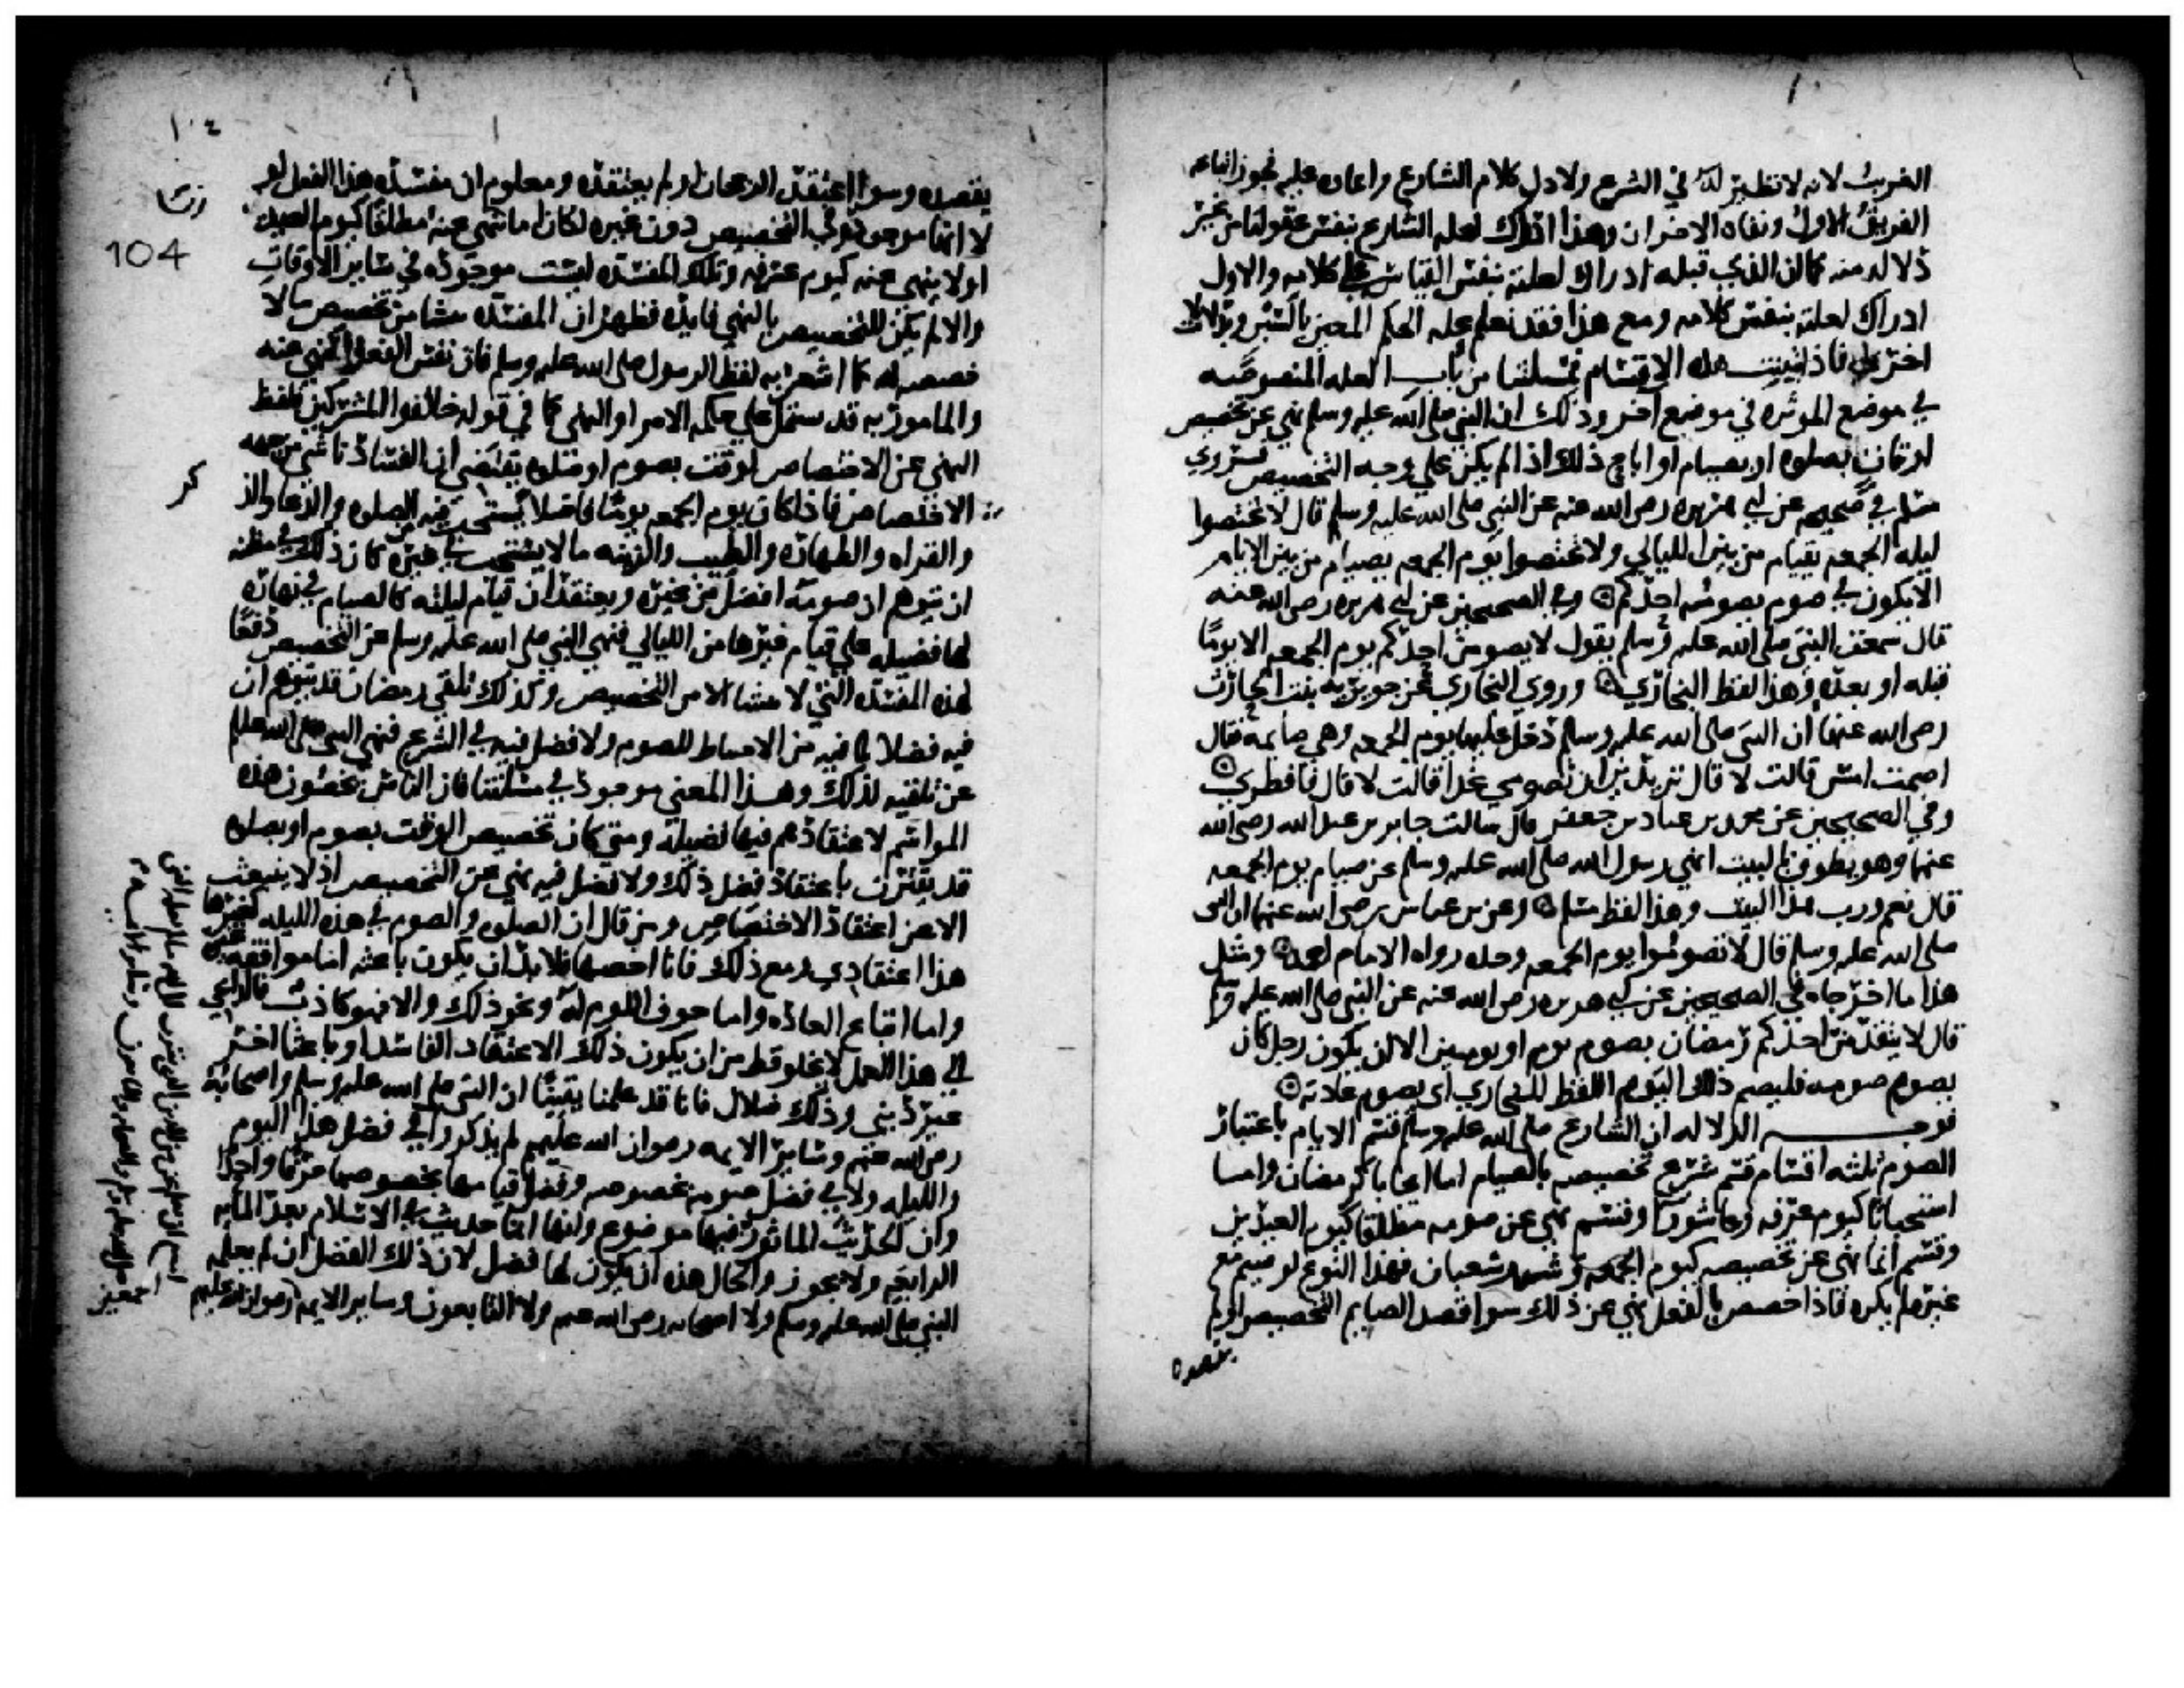 الغريب لانه لا نظير له في الشرع ولا دل كلام الشارع وايماؤه عليه فجوز اتباعه
الفريق الاول ونفاه الاخران وهذا ادراك لعله الشارع بنفس عقولنا من غير
دلاله منه كما ان الذي قبله ادراك لعلته بنفس القياس على كلامه والاول
ادراك لعلته بنفس كلامه ومع هذا فقد نعلم عله الحكم المعين بالسبر وبدلالات
اخرى فاذا ثبتت هذه الاقسام فمسلتنا من باب العله المنصوصه
في موضع الموثره في موضع اخر وذلك ان النبي صلى الله عليه وسلم نهى عن تخصيص
اوقات بصلوه او بصيام او اباح ذلك اذا لم يكن على وجه التخصيص فروى
مسلم في صحيحه عن ابي هريره رضي الله عنه عن النبي صلى الله عليه وسلم قال لا تختصوا
ليله الجمعه بقيام من بين الليالي ولا تختصوا يوم الجمعه بصيام من بين الايام
الا يكون في صوم يصومه احدكم وفي الصحيحين عن ابي هريره رضي الله عنه
قال سمعت النبي صلى الله عليه وسلم يقول لا يصومن احدكم يوم الجمعه الا يوما
قبله او بعده وهذا لفظ البخاري وروى البخاري عن جويريه بنت الحارث
رضي الله عنها ان النبي صلى الله عليه وسلم دخل عليها يوم الجمعه وهي صايمه فقال
اصمت امس قالت لا قال تريدين ان تصومي غدا قالت لا قال فافطري
وفي الصحيحين عن محمد بن عباد بن جعفر قال سالت جابر بن عبد الله رضي الله
عنهما وهو يطوف بالبيت انهى رسول الله صلى الله عليه وسلم عن صيام يوم الجمعه
قال نعم ورب هذا البيت وهذا لفظ مسلم وعن بن عباس رضي الله عنهما ان النبي
صلى الله عليه وسلم قال لا تصوموا يوم الجمعه وحده رواه الامام احمد ومثل
هذا ما اخرجاه في الصحيحين عن ابي هريره رضي الله عنه عن النبي صلى الله عليه وسلم
قال لا يتقدمن احدكم رمضان بصوم يوم او يومين الا ان يكون رجل كان
يصوم صومه فليصم ذلك اليوم اللفظ للبخاري اى يصوم عادته
فوجه الدلاله ان الشارع صلى الله عليه وسلم قسم الايام باعتبار
الصوم ثلثه اقسام قسم شرع تخصيصه بالصيام اما ايجابا كرمضان واما
استحبابا كيوم عرفه وعاشورا وقسم نهى عن صومه مطلقا كيوم العيدين
وقسم انما نهى عن تخصيصه كيوم الجمعه وشهر شعبان فهذا النوع لو صيم مع
غيره لم يكره فاذا خصص بالفعل نهي عن ذلك سوا قصد الصايم التخصيص او لم
يقصده
104
يقصده وسوا اعتقد الرجحان او لم يعتقده ومعلوم ان مفسده هذا الفعل لو
لا انها موجوده في التخصيص دون غيره لكان اما ينهى عنه مطلقا كيوم العيد
او لا ينهى عنه كيوم عرفه وتلك المفسده ليست موجوده في ساير الاوقات
والا لم يكن للتخصيص بالنهي فايده فظهر ان المفسده تنشا من تخصيص ما لا
خصيصه له كما اشعر به لفظ الرسول صلى الله عليه وسلم فان نفس الفعل المنهي عنه
والمامور به قد يشتمل على حكمه الامر او النهي كما في قوله خالفوا المشركين فلفظ
النهي عن الاختصاص لوقت بصوم او صلوه يقتضي ان الفساد ناشي من جهه
الاختصاص فاذا كان يوم الجمعه يوما فاضلا يستحب فيه الصلوه والدعا والذ
كر
والقراه والطهاره والطيب والزينه ما لا يستحب في غيره كان ذلك في مظنه
ان يتوهم ان صومه افضل من غيره ويعتقد ان قيام ليلته كالصيام في نهاره
لها فضيله على قيام غيرها من الليالي فنهى النبي صلى الله عليه وسلم عن التخصيص دفعا
لهذه المفسده التي لا تنشا الا من التخصيص وكذلك تلقي رمضان قد يتوهم ان
فيه فضلا لما فيه من الاحتياط للصوم ولا فضل فيه في الشرع فنهى النبي صلى الله عليه وسلم
عن تلقيه لذلك وهذا المعنى موجود في مسلتنا فان الناس يخصون هذه
المواسم لاعتقادهم فيها فضيله ومتى كان تخصيص الوقت بصوم او بصلوه
قد يقترن باعتقاد فضل ذلك ولا فضل فيه نهي عن التخصيص اذ لا ينبعث
الا عن اعتقاد الاختصاص ومن قال ان الصلوه والصوم في هذه الليله كغيرها
هذا اعتقادي ومع ذلك فانا اخصها فلا بد ان يكون باعثه اما موافقه غيره
واما اتباع العاده واما خوف اللوم له ونحو ذلك والا فهو كاذب فالداعي
الى هذا العمل لا يخلو قط من ان يكون ذلك الاعتقاد الفاسد او باعثا اخر
غير ديني وذلك ضلال فانا قد علمنا يقينا ان النبي صلى الله عليه وسلم واصحابه
رضي الله عنهم وساير الايمه رضوان الله عليهم لم يذكروا في فضل هذا اليوم
والليله ولا في فضل صومه بخصوصه وفضل قيامها بخصوصها حرفا واحدا
وان الحديث الماثور فيها موضوع وانها انما حدثت في الاسلام بعد المايه
الرابعه ولا يجوز والحال هذه ان يكون لها فضل لان ذلك الفضل ان لم يعلمه
النبي صلى الله عليه وسلم ولا اصحابه رضي الله عنهم ولا التابعون وساير الايمه رضوان الله عليهم